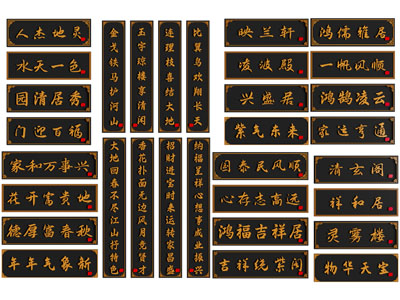 人杰地灵
水天一色
园清居秀
门迎百福
家和万事兴
花开富贵地
德厚富春秋
年年气象新
金戈铁马护河山
玉宇琼楼享清闲
连理枝喜结大地
比翼鸟欢翔长天
大地回春不尽江山行特色
杏花扑面无边风月竞背才
招财进宝时来运转家昌盛
纳福呈祥心想事成业振兴
映兰轩
凌波殿
兴盛居
紫气东来
国泰民风顺
心存志高远
鸿福吉祥居
吉祥统紫阁
鸿儒雅居
一帆风顺
鸿鹄凌云
家运亨通
清玄阁
祥和居
灵雾楼
物华天宝